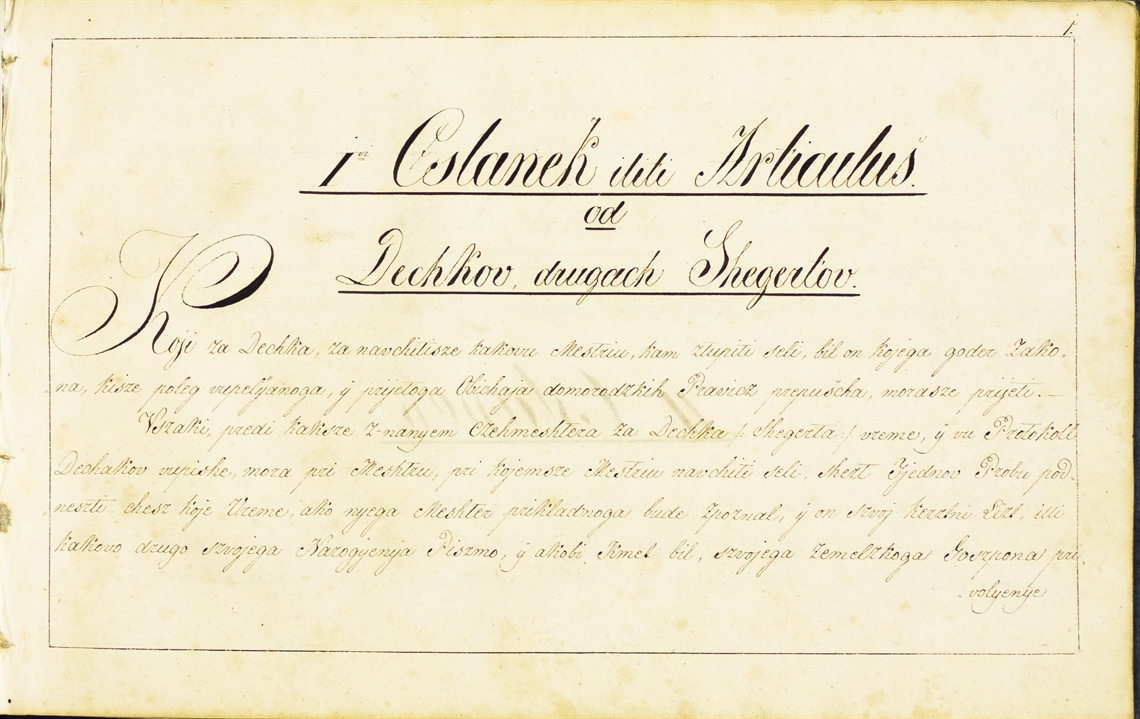 1.
1 vi Cslanek iliti Articuluš.
od
Dechkov, drugach Shegertov.
Koji za Dechka, za navchitisze kakovu Mestriu, kam ztupiti seli, bil on kojega goder Zako-
na, kisze poleg vupelyanoga, y prijetoga Obichaja domorodzkih Pravicz prepušcha, morasze prijeti. —
Vszaki, predi kaksze z-nanyem Czehmeshtera za Dechka /: Shegerta :/ vreme, y vu Protokoll
Dechakov vupishe, mora pri Meshtru, pri kojemsze Mestriu navchiti seli, shezt Tjednov Probu pod-
neszti, chesz koje Vreme, ako nyega Meshter prikladnoga bude zpoznal, y on szvoj kerztni Lizt, ili
kakovo drugo szvojega Narogyenja Piszmo, y akobi Kmet bil, szvojega zemelzkoga Goszpona pri-
volyenye